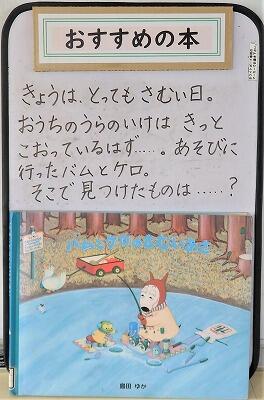 おすすめの本
きょうは、とっても さむい日。
おうちのうらのいけは きっと
こおっているはず……。あそびに
行ったバムとケロ。
そこで見つけたものは……？
バムとケロのさむいあさ
島田 ゆか